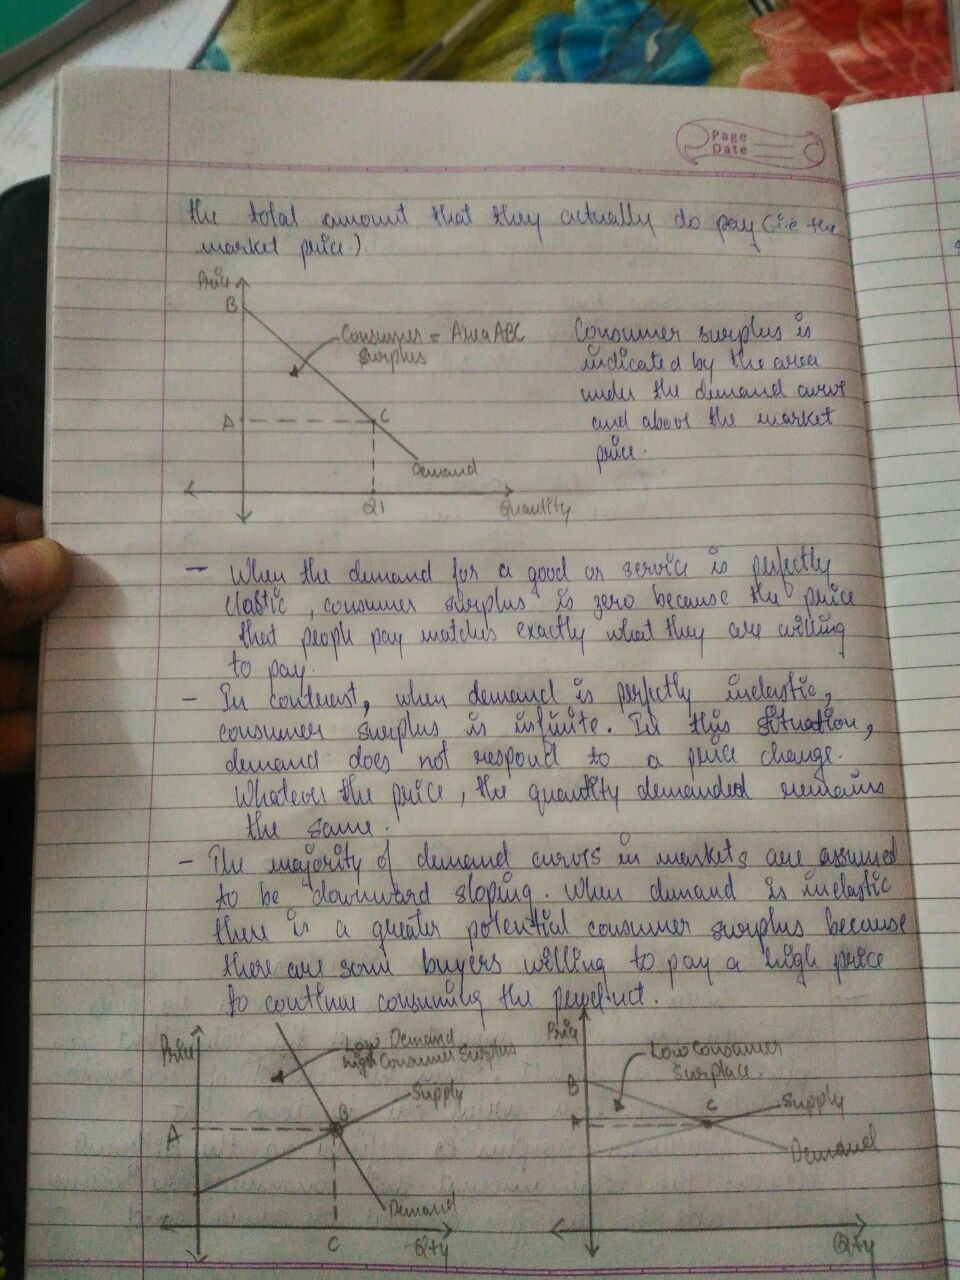 Page
Date
the total amount that they actually do pay (i.e the
market price).
Price
B
Consumer = Area ABC
Surplus
A
C
Demand
Q1
Quantity
Consumer surplus is
indicated by the area
under the demand curve
and above the market
price.
- When the demand for a good or service is perfectly
elastic, consumer surplus is zero because the price
that people pay matches exactly what they are willing
to pay.
- In contrast, when demand is perfectly inelastic,
consumer surplus is infinite. In this situation,
demand does not respond to a price change.
Whatever the price, the quantity demanded remains
the same.
- The majority of demand curves in markets are assumed
to be downward sloping. When demand is inelastic
there is a greater potential consumer surplus because
there are some buyers willing to pay a high price
to continue consuming the product.
Price
Low Demand
high Consumer Surplus
Supply
A
B
Demand
C
Qty
Price
Low Consumer
Surplace
B
A
C
Supply
Demand
Qty